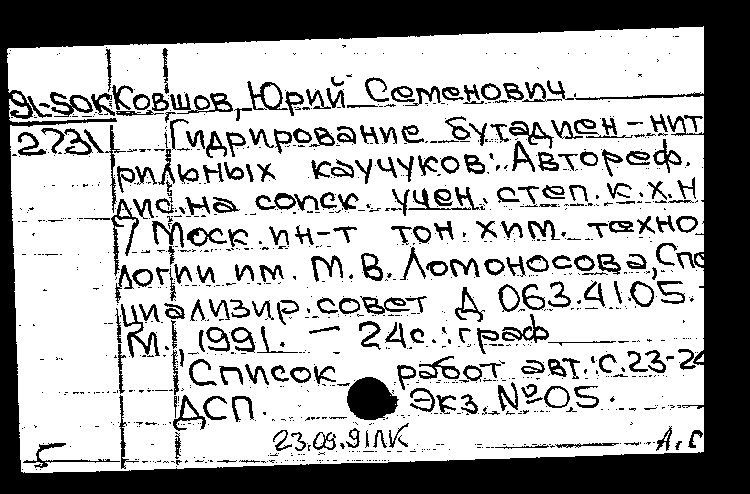 91-50К Ковшов, Юрий Семенович.
2731 Гидрирование бутадиен-нит
рильных каучуков: Автореф.
дис.на соиск. учен. степ. к.х.н
/ Моск. ин-т тон. хим. техно
логии им. М.В. Ломоносова, Спе
циализир. совет Д 063.41.05. -
М., 1991. - 24с.: граф
Список работ авт.: с.23-24
ДСП. Экз. №05.
23.09.91ЛК
5 А.С